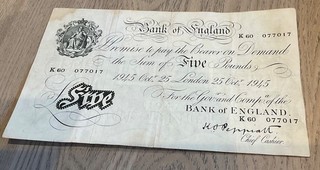 Bank of England
K60 077017
Promise to pay the Bearer on Demand
the Sum of Five Pounds
K60 077017
1945 Oct. 25 London 25 Oct. 1945
For the Gov.r and Comp.a of the
K60 077017
Five
BANK OF ENGLAND.
K O Peppiatt
Chief Cashier